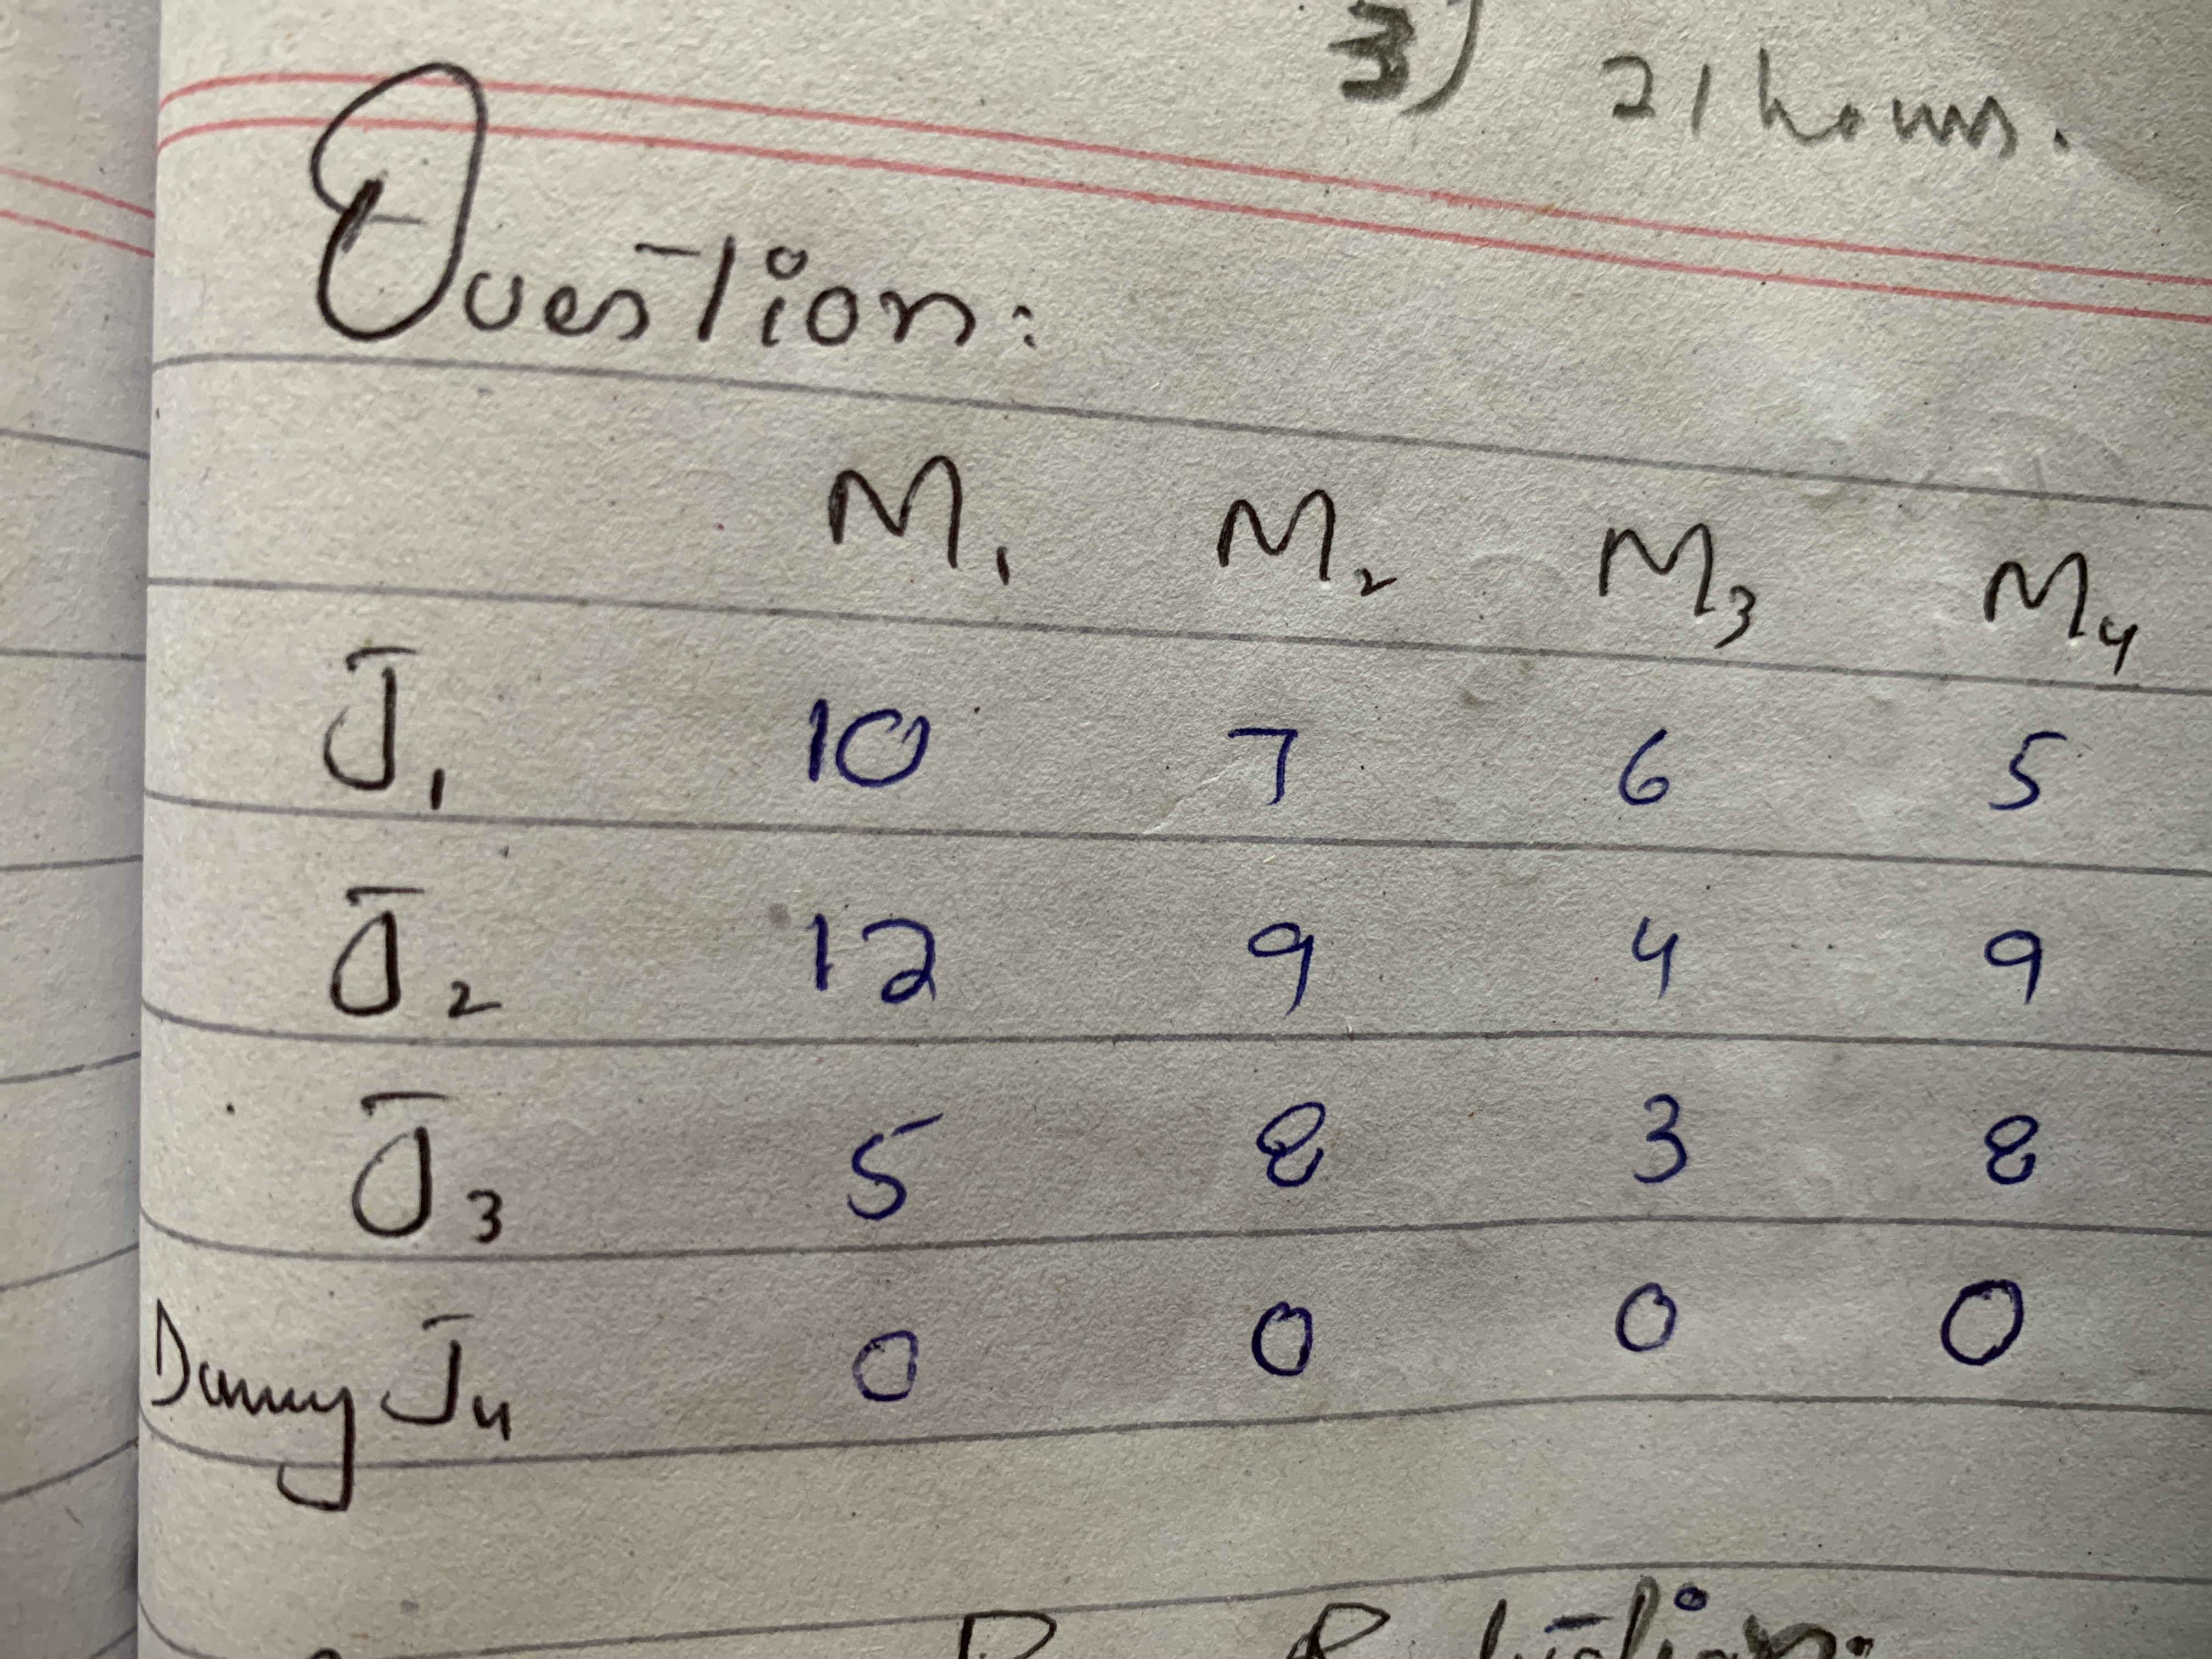 3) 21 hours.
Question:
M1 M2 M3 M4
J1 10 7 6 5
J2 12 9 4 9
J3 5 8 3 8
Dummy J4 0 0 0 0